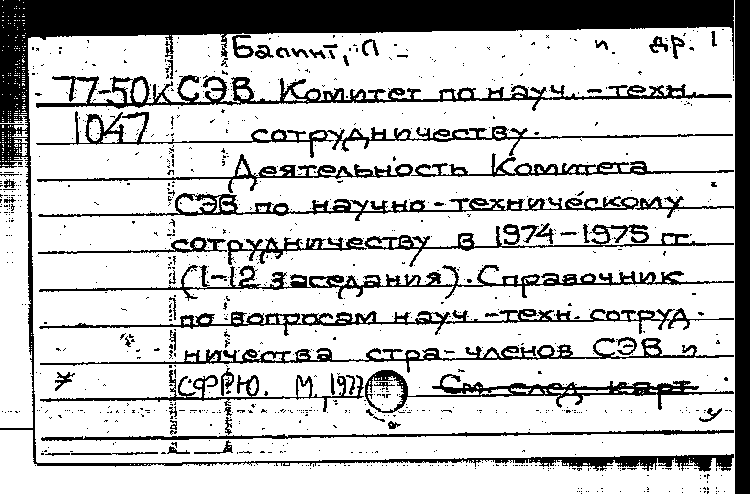 Балинт, П - и др. 1
77-50к СЭВ. Комитет по науч.-техн.
1047 сотрудничеству.
Деятельность Комитета
СЭВ по научно-техническому
сотрудничеству в 1974-1975 гг.
(1-12 заседания). Справочник
по вопросам науч.-техн. сотруд-
ничества стра-членов СЭВ и
СФРЮ. М., 1977 См. след. карт